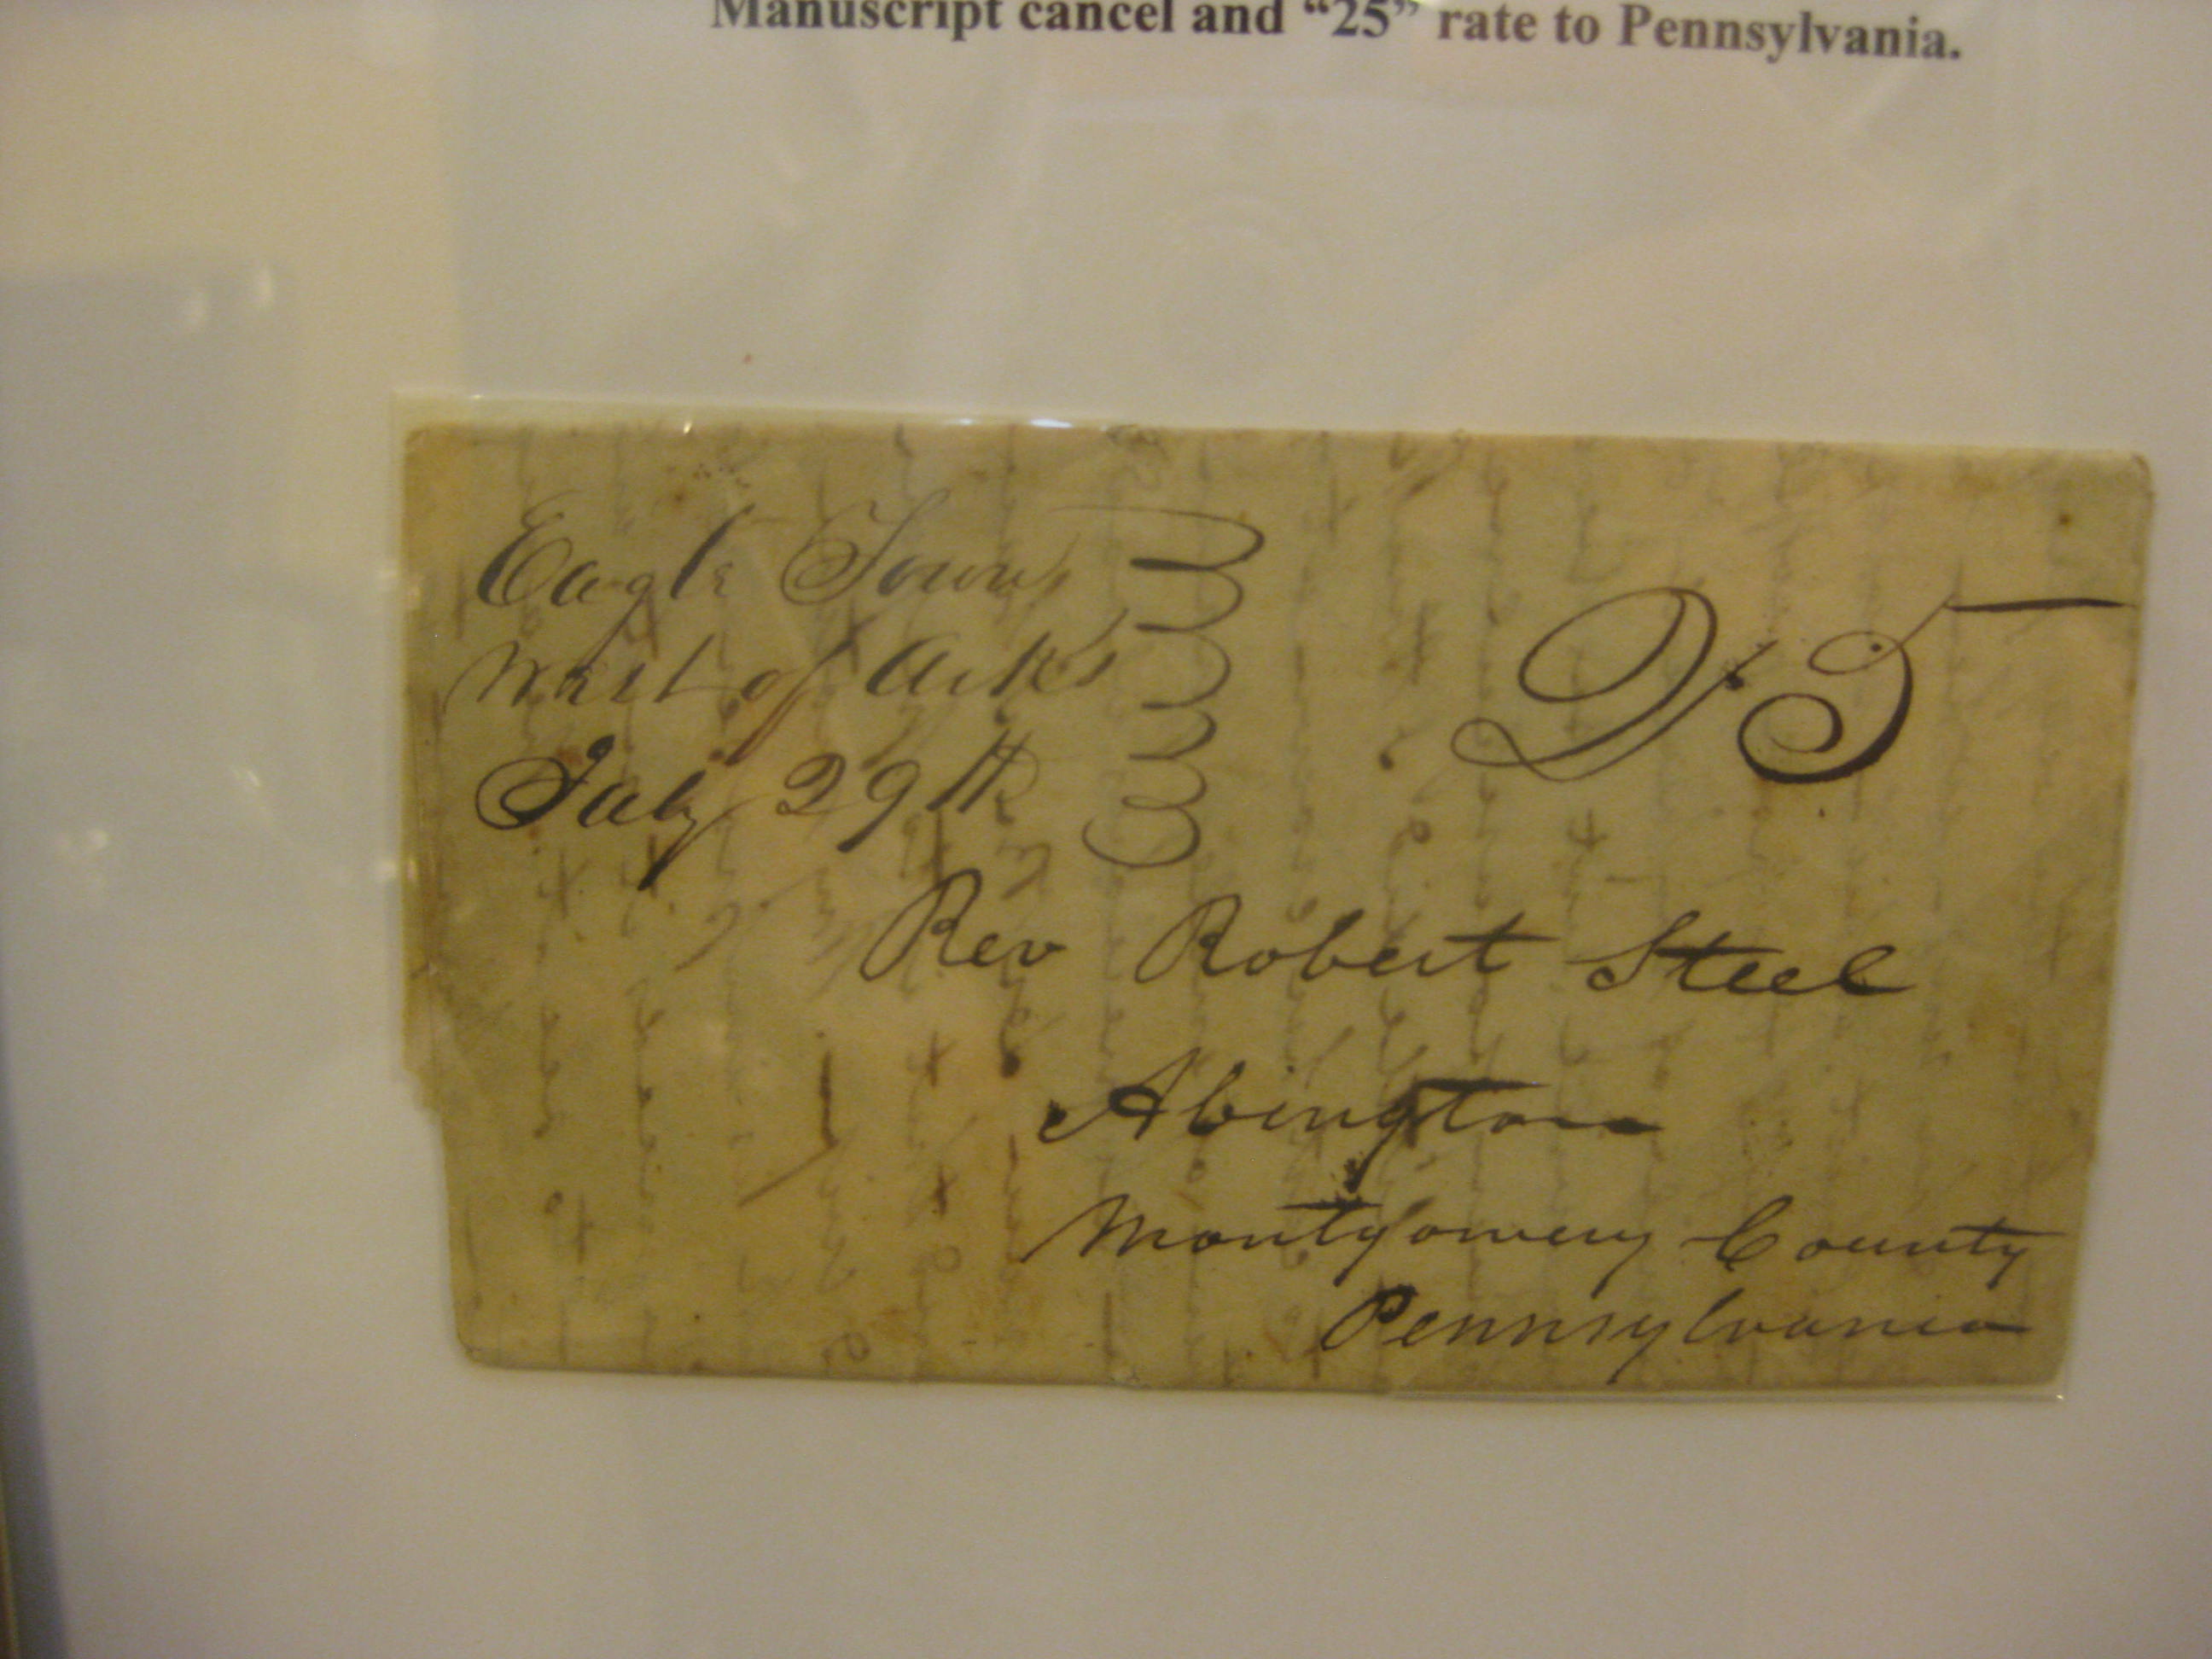 Manuscript cancel and “25” rate to Pennsylvania.
Eagle Town
West of Arks
July 29th
25
Rev Robert Steel
Abington
Montgomery County
Pennsylvania